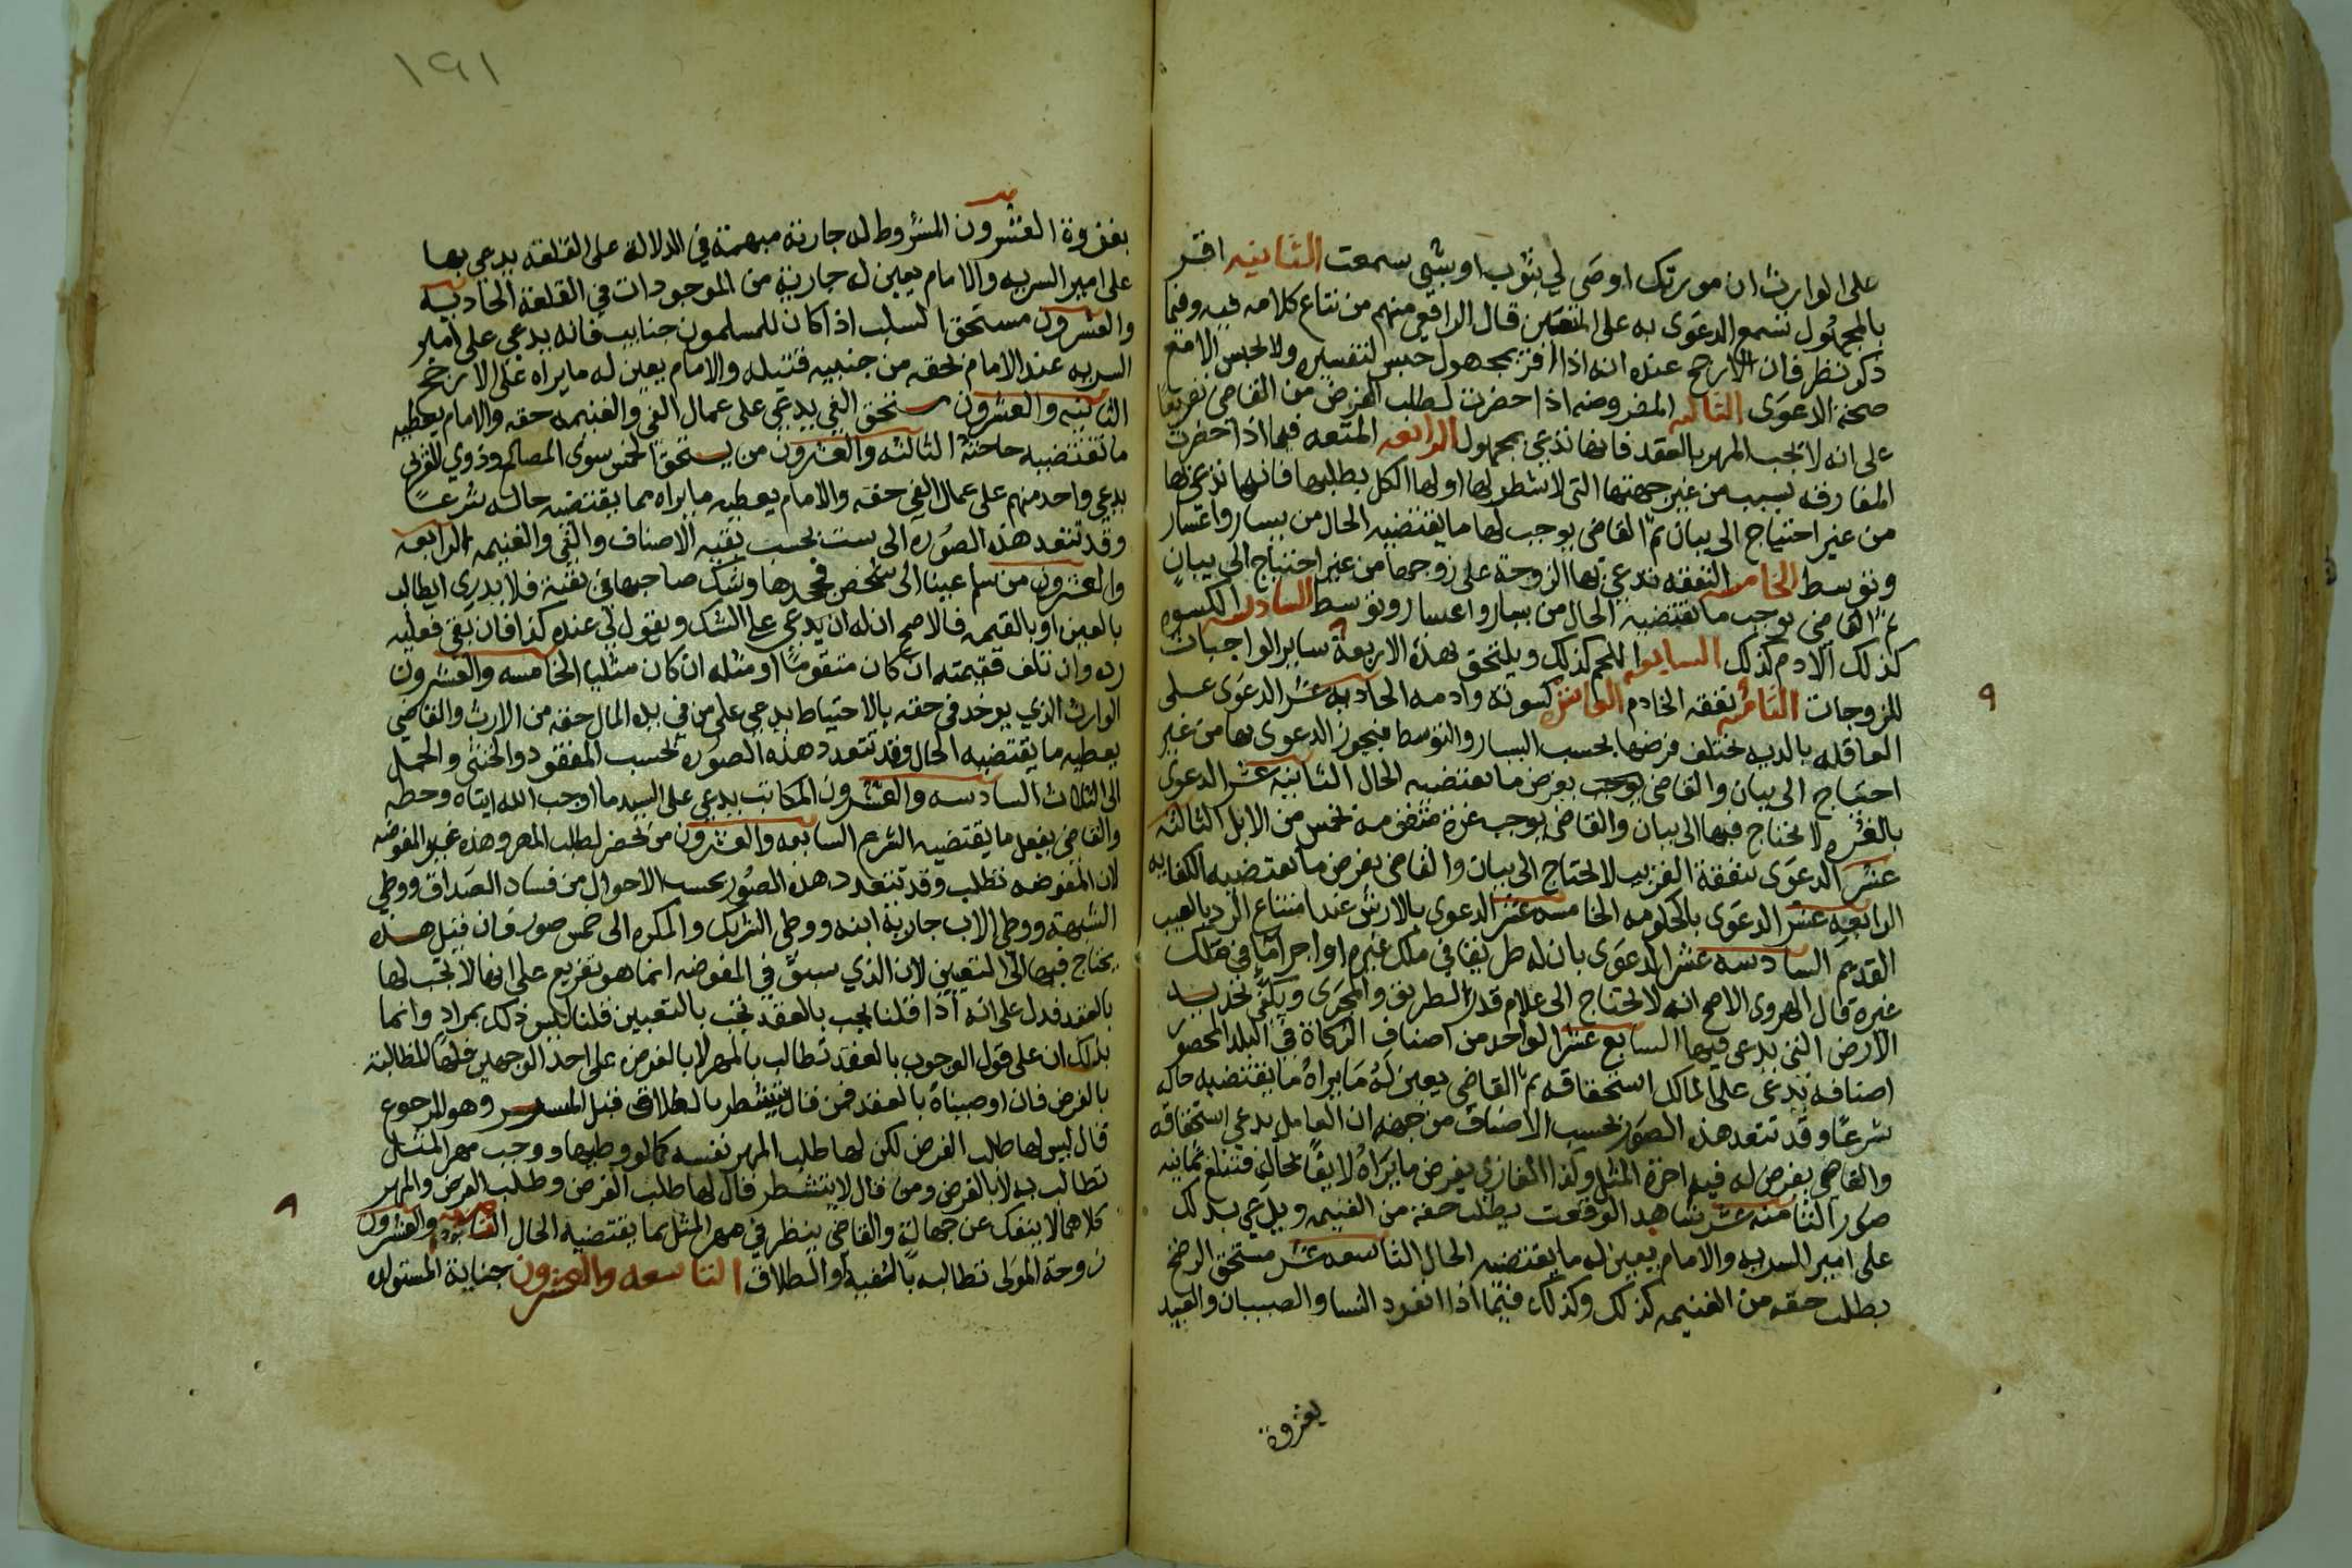 على الوارث ان مورثك اوصى لي بثوب او بشي سمعت الثانيه اقر
بالمجهول تسمع الدعوى به على قال الرافعي منهم من نتاع كلامه فيه وفيما
ذكر نظر فان الارجح عنده انه اذا اقر بمجهول حبس لتفسيره ولا لحبس الا مع
صحة الدعوى الثالثه المفروضه اذا حضرت لطلب الفرض من القاضي تفريعا
على انه لا يجب المهر بالعقد فانها تدعي بمجهول الرابعه المتعه فيما اذا حضرت
المفارقه بسبب من غير جهتها التي لا شطر لها او لها الكل بطلبها فانها تدعي بها
من غير احتياج الى بيان ثم القاضي يوجب لها ما يقتضيه الحال من يسار واعسار
وتوسط الخامسه النفقه تدعي بها الزوجة على زوجها من غير احتياج الى بيان
ثم القاضي يوجب ما يقتضيه الحال من يسار واعسار وتوسط السادسه الكسوه
كذلك الادم كذلك السابعه اللحم كذلك ويلتحق بهذه الاربعة ساير الواجبات
للزوجات الثامنه نفقه الخادم العاشره كسوته وادمه الحاديه عشر الدعوى على
العاقله بالديه يختلف فرضها بحسب اليسار والتوسط فيجوز الدعوى بها من غير
احتياج الى بيان والقاضي يوجب بفرض ما يقتضيه الحال الثانيه عشر الدعوى
بالغره لا يحتاج فيها الى بيان والقاضي يوجب غرة متقومة بخمس من الابل الثالثه
عشر الدعوى بنفقة القريب لا يحتاج الى بيان والقاضي يفرض ما يقتضيه الكفايه
الرابعه عشر الدعوى بالحكومه الخامسه عشر الدعوى بالارش عند امتناع الرد بالعيب
القديم السادسه عشر الدعوى بان له طريقا في ملك غيره او اجرا ما في ملك
غيره قال الهروي الاصح انه لا يحتاج الى علام قدر الطريق والمجرى ويكفي تحديد
الارض التي يدعي فيها السابع عشر الواحد من اصناف الزكاة في البلد المحصور
اصنافه يدعي على المالك استحقاقه ثم القاضي يعين له ما يراه ما يقتضيه حاله
شرعا وقد تتعد هذه الصور بحسب الاصناف من جهه ان العامل يدعي استحقاقه
والقاضي يفرض له فيه اجرة المثل وكذا الغازي يفرض ما يراه لايقا بحاله فتبلغ ثمانيه
صور الثامنه عشر شاهد الوقعت يطلب حقه من الغنيمه ويدعي بذلك
على امير السريه والامام يعين له ما يقتضيه الحال التاسعه عشر مستحق الرضخ
يطلب حقه من الغنيمه كذلك وكذلك فيما اذا انفرد النسا والصبيان والعبيد
بغزوة
٩
١٩١
بغزوة العشرون المشروط له جارية مبهمة في الدلالة على القلعه يدعي بها
على امير السريه والامام يعين له جارية من الموجودات في القلعه الحاديه
والعشرون مستحق السلب اذا كان للمسلمون جنايب فانه يدعي على امير
السريه عند الامام بحقه من جنيبه قتيله والامام يعين له ما يراه على الارجح
الثانيه والعشرون مستحق الفي يدعي على عمال الفي والغنيمه حقه والامام يعطيه
ما تقتضيه حاجته الثالثه والعشرون من يستحق الخمس سوى المصالح وذوي القربى
يدعي واحد منهم على عمال الفي حقه والامام يعطيه ما يراه مما يقتضيه حاله شرعا
وقد تتعد هذه الصوره الى ست بحسب بقيه الاصناف والفي والغنيمه الرابعه
والعشرون من سلم عينا الى شخص فجحدها وشك صاحبها في بقيه فلا يدري ايطالب
بالعين او بالقيمه فالاصح ان له ان يدعي على الشك ويقول لي عنده كذا فان بقي فعليه
رده وان تلف فقيمته ان كان متقوما او مثله ان كان مثليا الخامسه والعشرون
الوارث الذي يوخذ في حقه بالاحتياط يدعي على من في يده المال حقه من الارث والقاضي
يعطيه ما يقتضيه الحال وقد تتعدد هذه الصوره بحسب المفقود والخنثى والحمل
الى الثلاث السادسه والعشرون المكاتب يدعي على السيد ما اوجب الله ايتاه وحطه
والقاضي يفعل ما يقتضيه الشرع السابعه والعشرون من تحضر لطلب المهر وهذه غير المفوضه
لان المفوضه تطلب وقد تتعدد هذه الصور بحسب الاحوال من فساد الصداق ووطي
الشبهة ووطي الاب جارية ابنه ووطي الشريك والمكره الى خمس صور فان قيل هذه
يحتاج فيها الى التعيين لان الذي سبق في المفوضه انما هو تفريع على انها لا تجب لها
بالعقد فدل على انه اذا قلنا يجب بالعقد تجب بالتعيين قلنا ليس ذلك بمراد وانما
بذلك ان على قول الوجوب بالعقد تطالب بالمهر لا بالفرض على احد الوجهين فلها المطالبة
بالفرض فان اوجبناه بالعقد فمن قال يتشطر بالطلاق قبل المسيس وهو المرجوع
قال ليس لها طلب الفرض لكن لها طلب المهر نفسه كما لو وطيها ووجب مهر المثل
تطالب به لا بالفرض ومن قال لا يتشطر قال لها طلب الفرض وطلب الفرض والمهر
كلاهما لا ينفك عن جهالة والقاضي ينظر في مهر المثل بما يقتضيه الحال الثامنه والعشرون
زوجة المولى تطالب بالفيئة او الطلاق التاسعه والعشرون جناية المستولده
٩